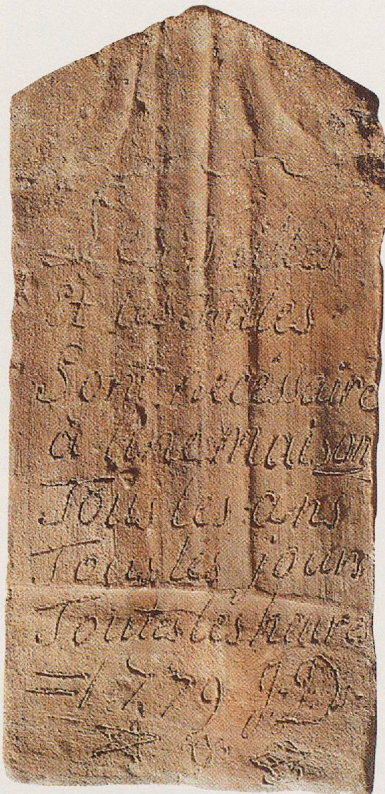 Les
Et les tuiles
Sont necessaire
à une maison
Tous les ans
Tous les jours
Toutes les heures
=1779 J.D